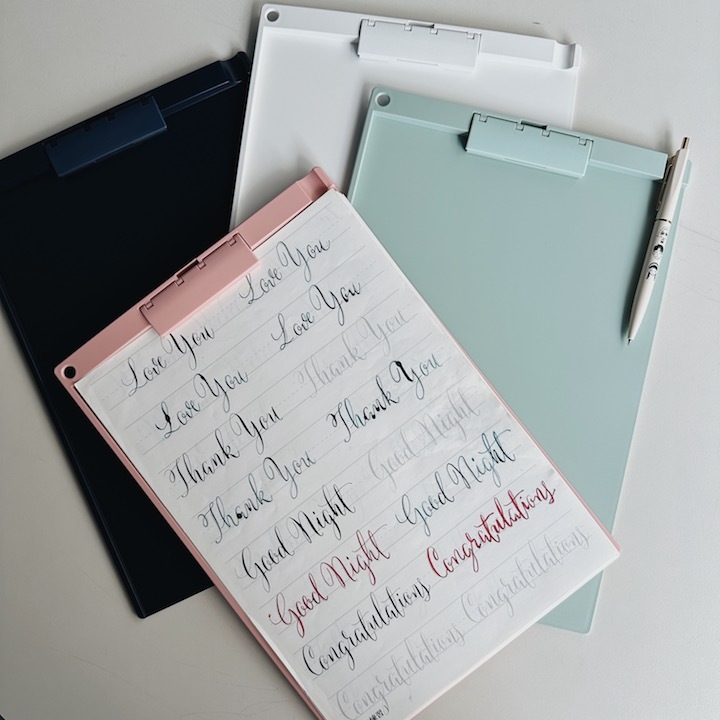 Love You Love You
Love You Love You
Thank You Thank You
Thank You Thank You
Good Night Good Night
Good Night Good Night
Congratulations Congratulations
Congratulations Congratulations